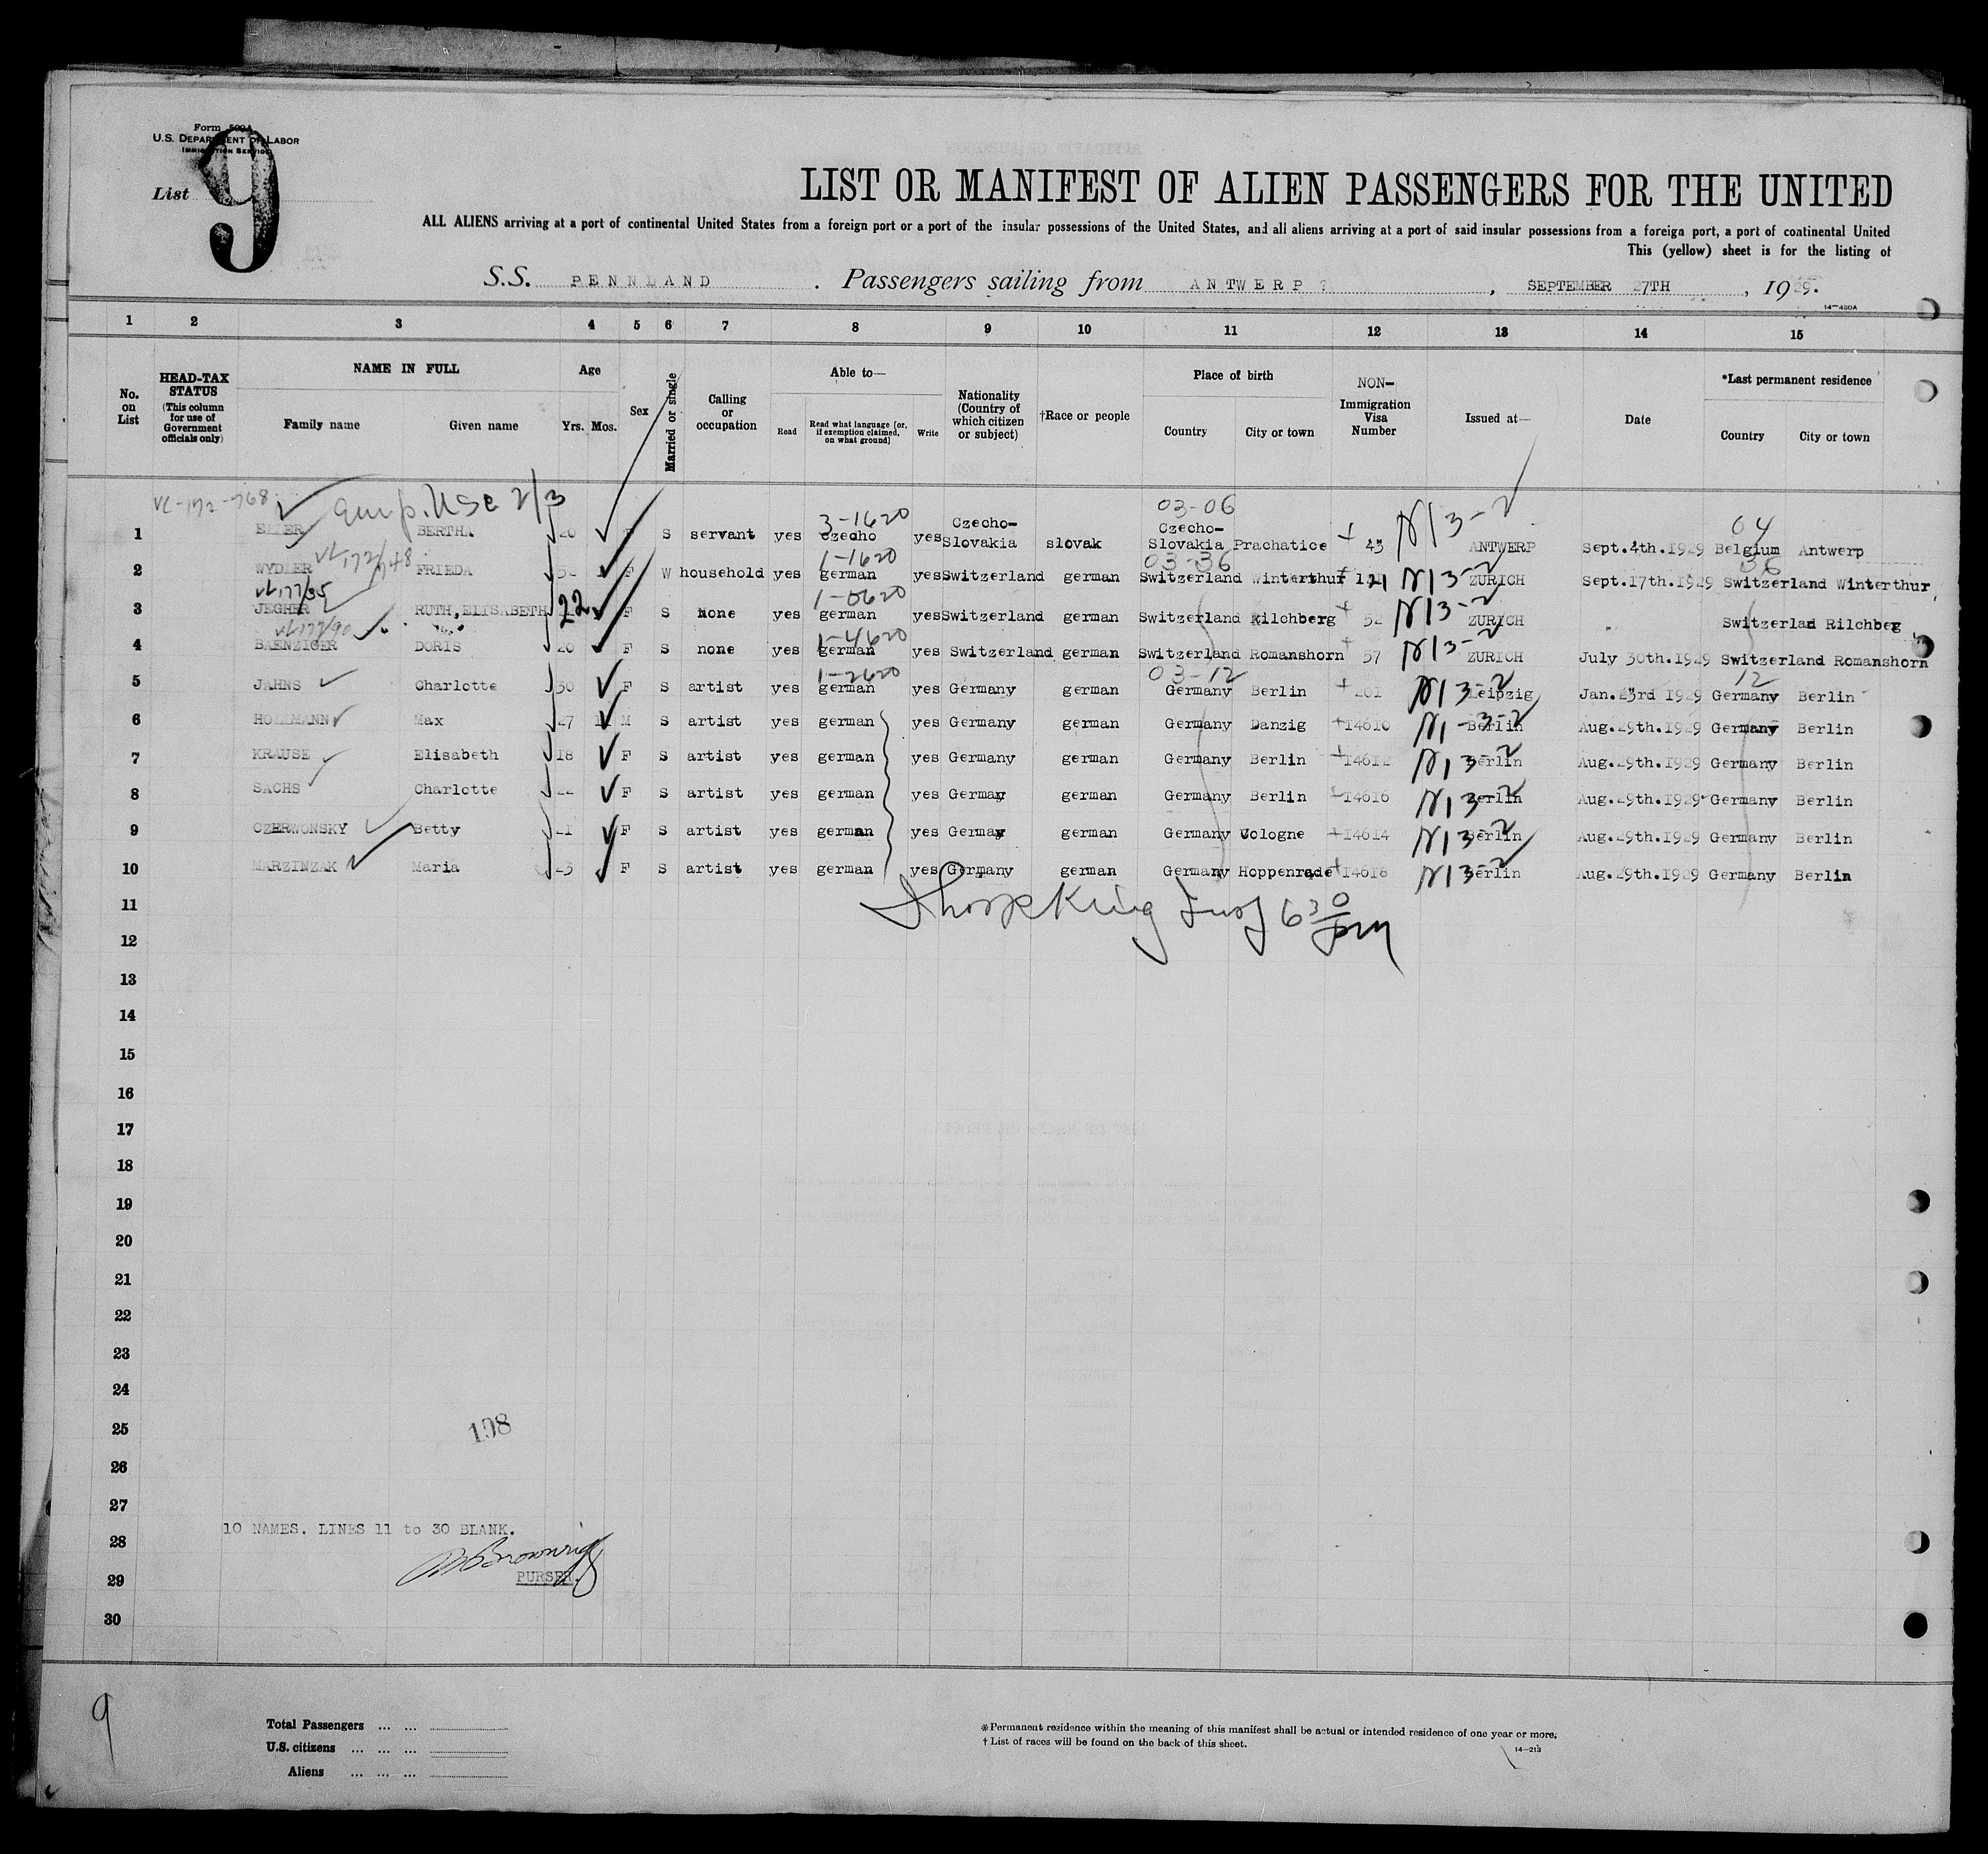 Form 500A
U.S. DEPARTMENT OF LABOR
IMMIGRATION SERVICE
List 9
LIST OR MANIFEST OF ALIEN PASSENGERS FOR THE UNITED
ALL ALIENS arriving at a port of continental United States from a foreign port or a port of the insular possessions of the United States, and all aliens arriving at a port of said insular possessions from a foreign port, a port of continental United
This (yellow) sheet is for the listing of
S.S. PENNLAND . Passengers sailing from ANTWERP , SEPTEMBER 27TH , 1929.
14-480A
1 2 3 4 5 6 7 8 9 10 11 12 13 14 15
No. on List
HEAD-TAX STATUS (This column for use of Government officials only)
NAME IN FULL
Family name Given name
Age
Yrs. Mos.
Sex
Married or single
Calling or occupation
Able to—
Read Read what language [or, if exemption claimed, on what ground] Write
Nationality (Country of which citizen or subject)
†Race or people
Place of birth
Country City or town
NON-Immigration Visa Number
Issued at—
Date
*Last permanent residence
Country City or town
VL-172-768 2/3
3-1620 03-06 04
1 BERTHA 20 F S servant yes Czecho yes Czecho-Slovakia slovak Czecho-Slovakia Prachatice 43 N13-2 ANTWERP Sept.4th.1929 Belgium Antwerp
1-1620 03-36 36
2 WYDLER FRIEDA 52 F W household yes german yes Switzerland german Switzerland Winterthur 121 N13-2 ZURICH Sept.17th.1929 Switzerland Winterthur
1-0620
3 JEGHER RUTH,ELISABETH 22 F S None yes german yes Switzerland german Switzerland Kilchberg 52 N13-2 ZURICH Switzerlad Rilchbeg
1-4620
4 BAENZIGER DORIS 20 F S none yes german yes Switzerland german Switzerland Romanshorn 57 N13-2 ZURICH July 30th.1929 Switzerland Romanshorn
1-2620 03-12 12
5 JAHNS Charlotte 30 F S artist yes german yes Germany german Germany Berlin 201 N13-2 Leipzig Jan.23rd 1929 Germany Berlin
6 HOLZMANN Max 47 M S artist yes german yes Germany german Germany Danzig 14610 N1-3-2 Berlin Aug.29th.1929 Germany Berlin
7 KRAUSE Elisabeth 18 F S artist yes german yes Germany german Germany Berlin 14612 N13-2 Berlin Aug.29th.1929 Germany Berlin
8 SACHS Charlotte 22 F S artist yes german yes Germay german Germany Berlin 14616 N13-2 Berlin Aug.29th.1929 Germany Berlin
9 CZERWONSKY Betty 21 F S artist yes german yes Germay german Germany Cologne 14614 N13-2 Berlin Aug.29th.1929 Germany Berlin
10 MARZINZAK Maria 23 F S artist yes german yes Germany german Germany Hoppenrade 14618 N13-2 Berlin Aug.29th.1929 Germany Berlin
11 King 6 30 pm
12
13
14
15
16
17
18
19
20
21
22
23
24
25
198
26
27
10 NAMES. LINES 11 to 30 BLANK.
28
29 PURSER.
30
9
Total Passengers ... ...
U.S. citizens ... ... ...
Aliens ... ... ...
*Permanent residence within the meaning of this manifest shall be actual or intended residence of one year or more.
† List of races will be found on the back of this sheet.
14-213